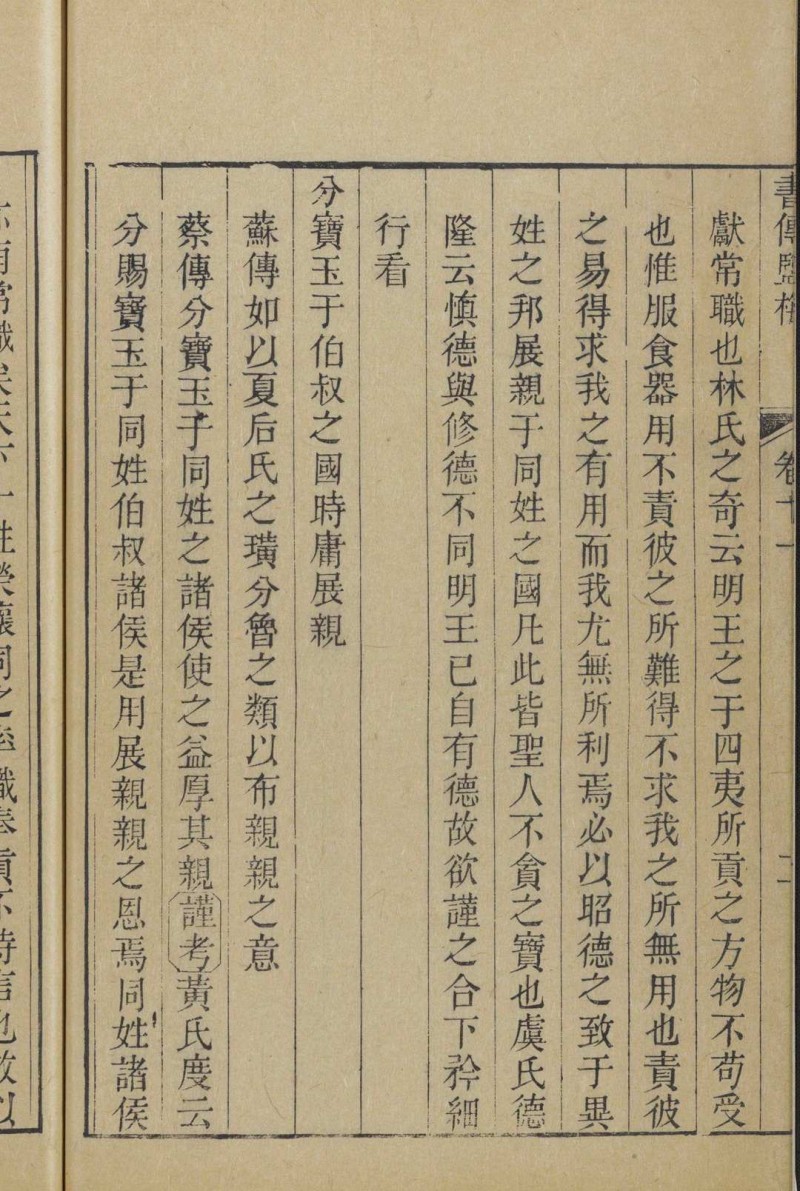 書傳鹽梅 卷十一 二
獻常職也林氏之奇云明王之于四夷所貢之方物不苟受
也惟服食器用不責彼之所難得不求我之所無用也責彼
之易得求我之有用而我尤無所利焉必以昭德之致于異
姓之邦展親于同姓之國凡此皆聖人不貪之寶也虞氏德
隆云慎德與修德不同明王已自有德故欲謹之合下矜細
行看
分寶玉于伯叔之國時庸展親
蘇傳如以夏后氏之璜分魯之類以布親親之意
蔡傳分寶玉于同姓之諸侯使之益厚其親謹考黃氏度云
分賜寶玉于同姓伯叔諸侯是用展親親之恩焉同姓諸侯